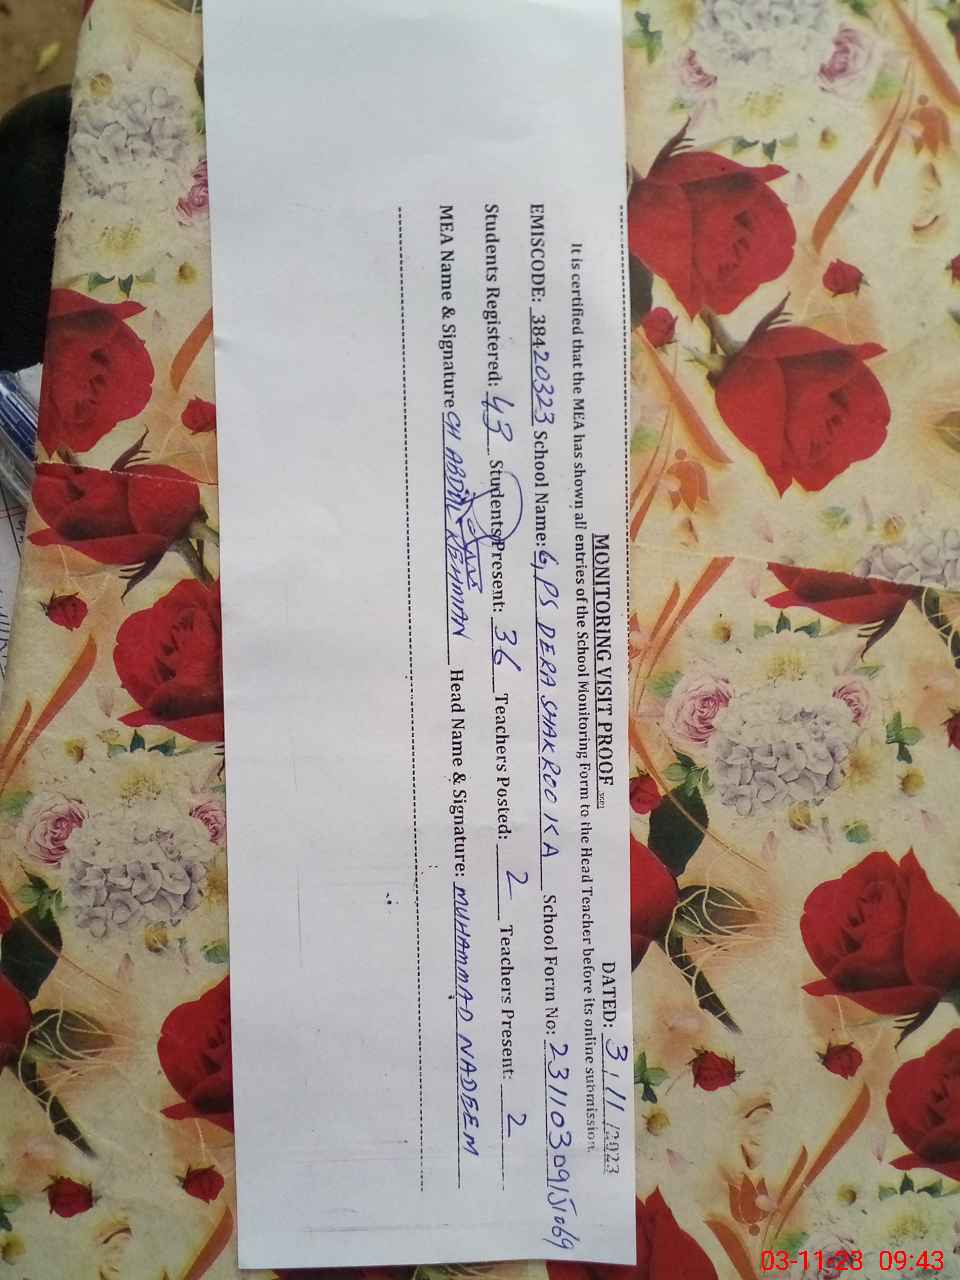 MONITORING VISIT PROOF
DATED: 3/11/2023
It is certified that the MEA has shown all entries of the School Monitoring Form to the Head Teacher before its online submission.
EMISCODE: 38420323 School Name: G,PS DERA SHAKROO KA School Form No: 23110309151069
Students Registered: 43 Students Present: 36 Teachers Posted: 2 Teachers Present: 2
MEA Name & Signature CH ABDUL REHMAN Head Name & Signature: MUHAMMAD NADEEM
03-11-23 09:43